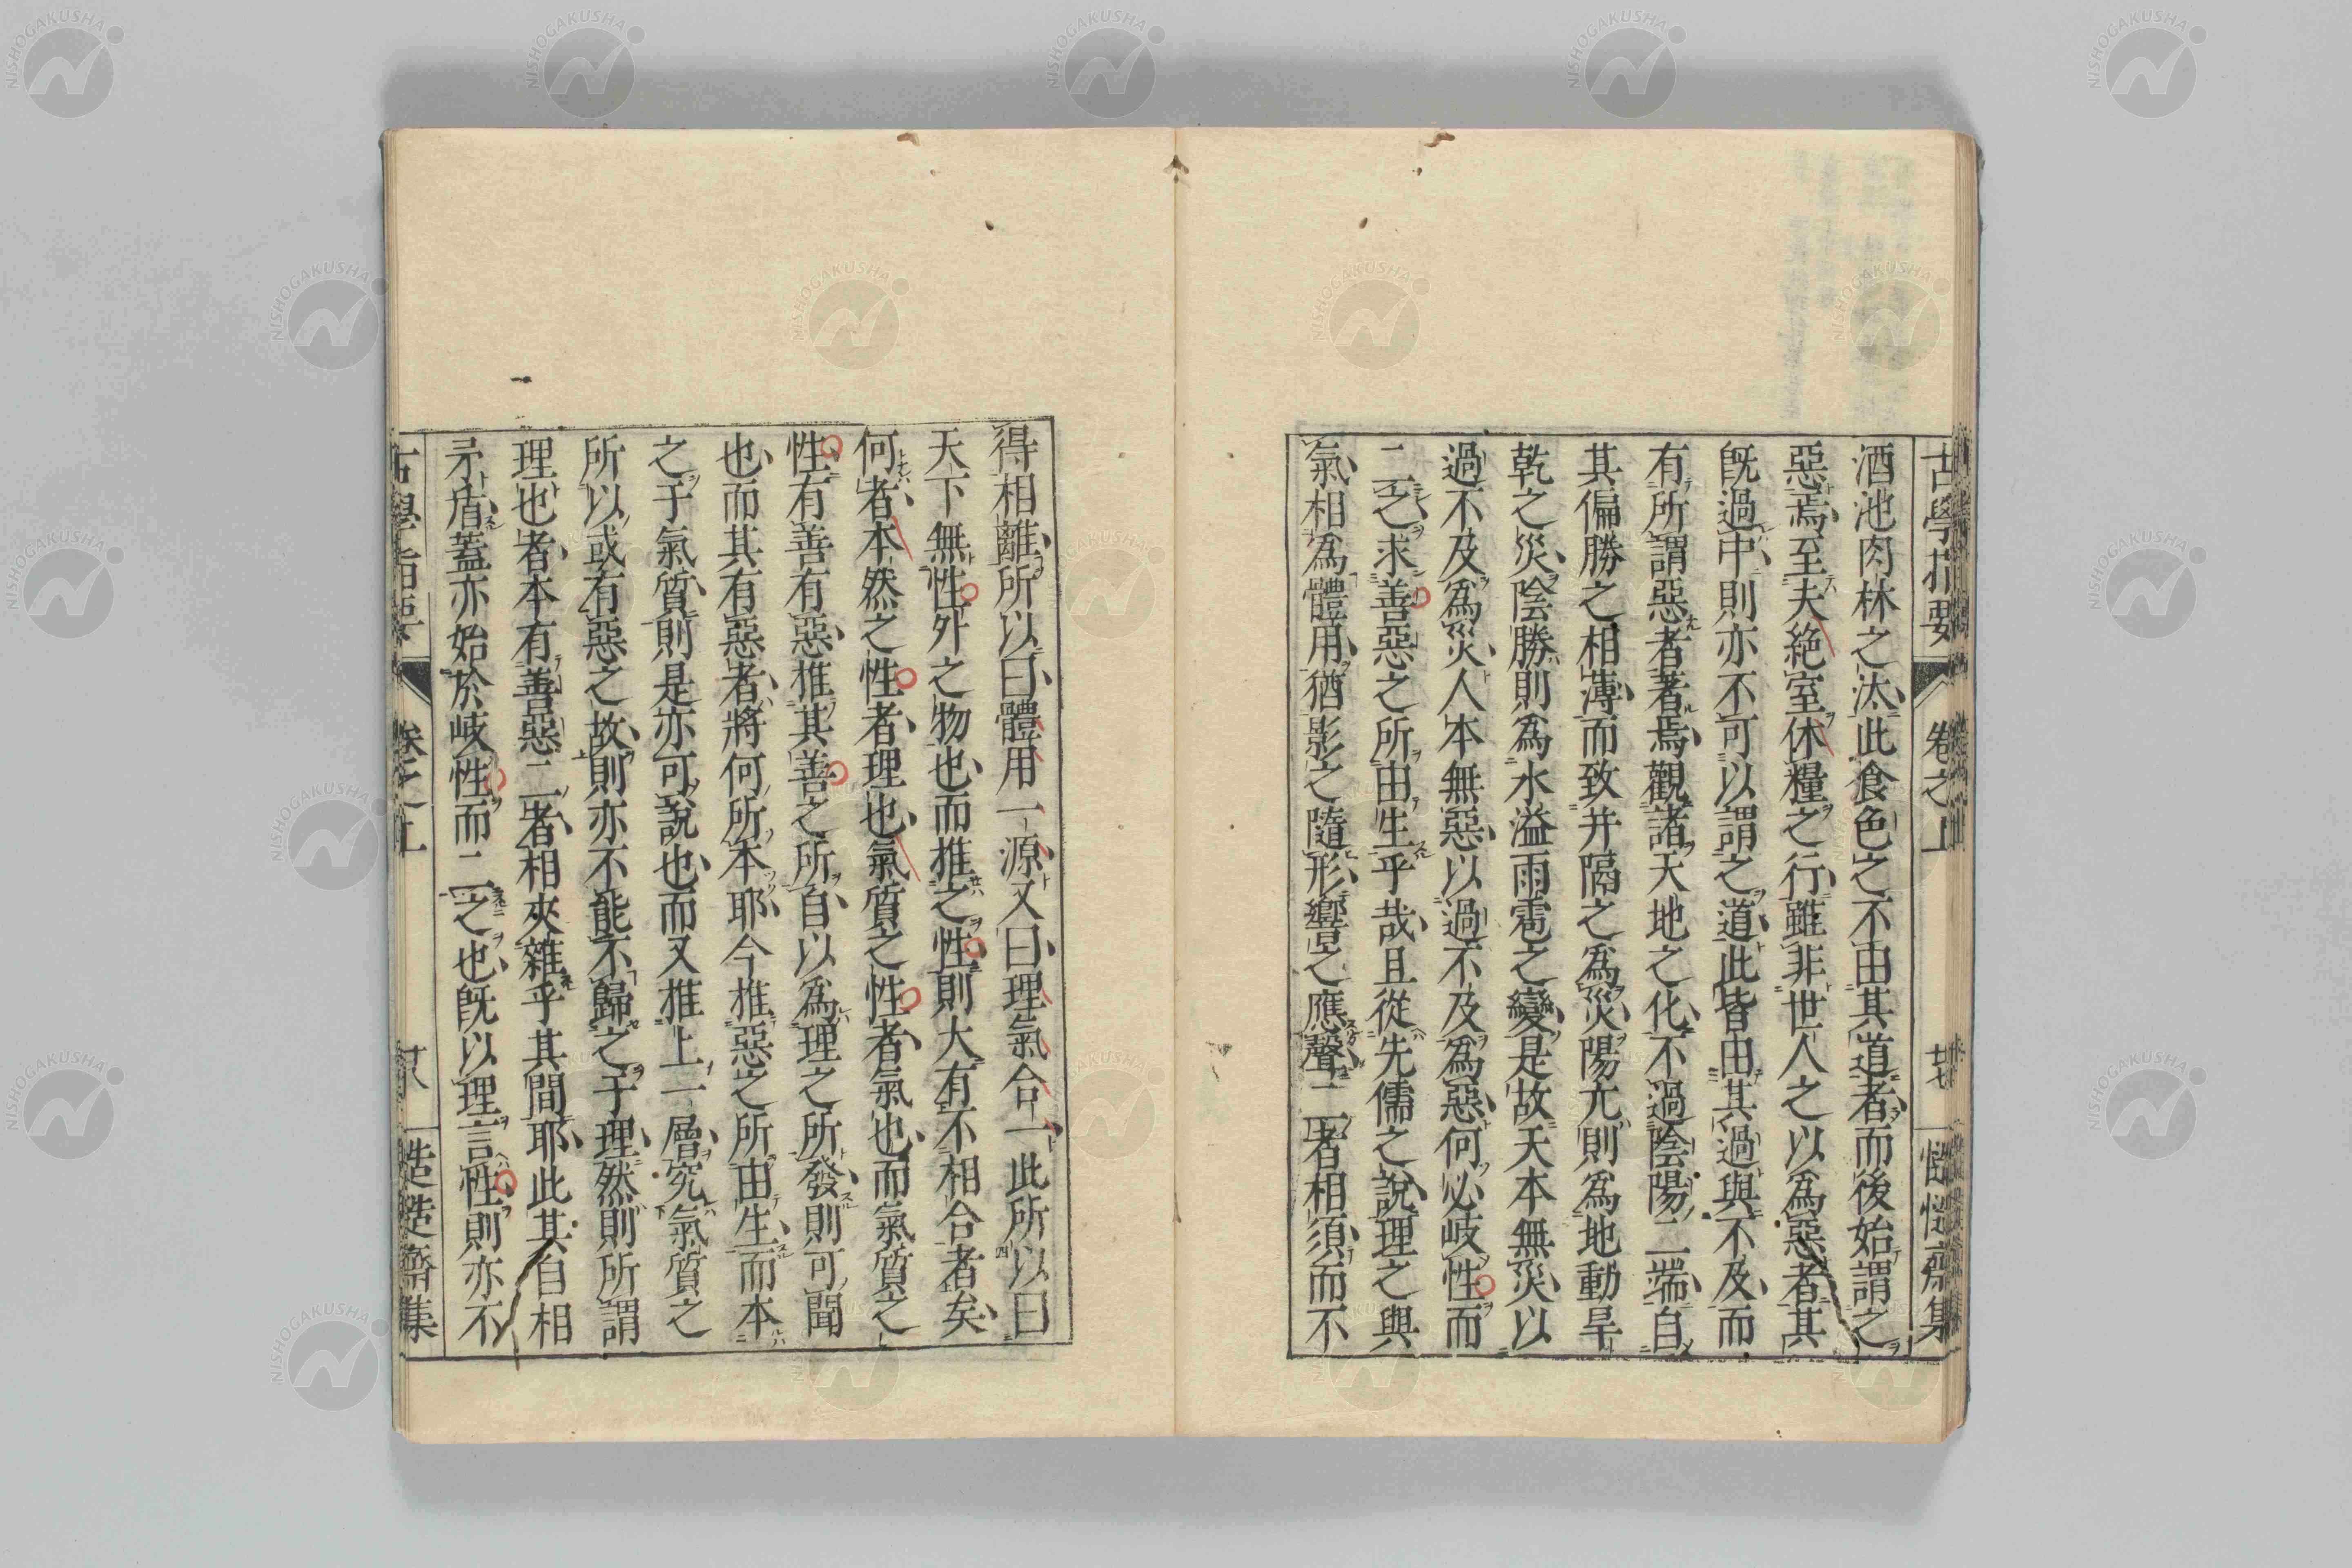 古學指要 卷之上 廿七 慥慥齋集
酒池肉林之汰此食色之不由其道者而後始謂之
惡焉至夫絶室休糧之行雖非世人之以爲惡者其
旣過中則亦不可以謂之道此皆由其過與不及而
有所謂惡者著焉觀諸天地之化不過陰陽二端自
其偏勝之相薄而致并隔之爲災陽亢則爲地動旱
乾之災陰勝則爲水溢雨雹之變是故天本無災以
過不及爲災人本無惡以過不及爲惡何必岐性而
二之求善惡之所由生乎哉且從先儒之說理之與
氣相爲體用猶影之隨形響之應聲二者相須而不
得相離所以曰體用一源又曰理氣合一此所以曰
天下無性外之物也而推之性則大有不相合者矣
何者本然之性者理也氣質之性者氣也而氣質之
性有善有惡推其善之所自以爲理之所發則可聞
也而其有惡者將何所本耶今推惡之所由生而本
之于氣質則是亦可說也而又推上一層究氣質之
所以或有惡之故則亦不能不歸之于理然則所謂
理也者本有善惡二者相夾雜乎其間耶此其自相
矛盾蓋亦始於岐性而二之也旣以理言性則亦不
古學指要 卷之上 廿八 慥慥齋集
NISHOGAKUSHA